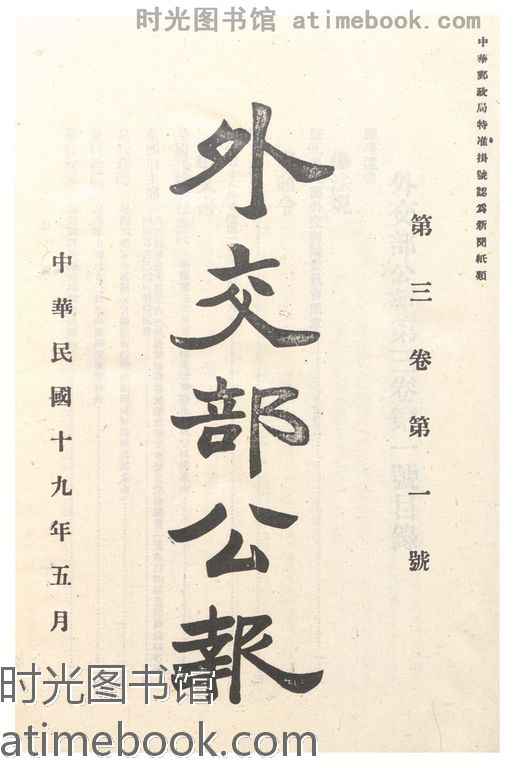 时光图书馆 atimebook.com
中華郵政局特准掛號認爲新聞紙類
第三卷第一號
外交部公報
中華民國十九年五月
时光图书馆
atimebook.com